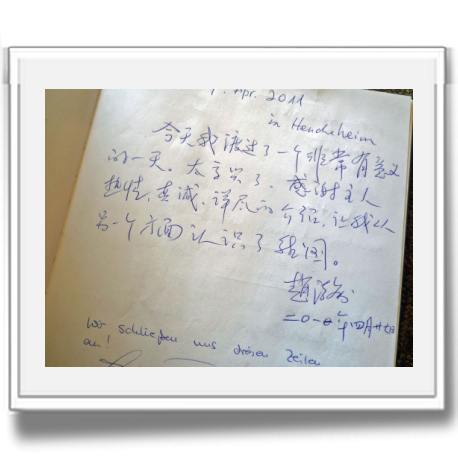 Apr. 2011
in
今天我渡过了一个非常有意义
的一天。太高兴了。感谢主人
热情、真诚、详尽的介绍,让我从
另一个方面认识了德国。
赵
年四月廿七日
Wir schließen uns diesen Zeilen
an!